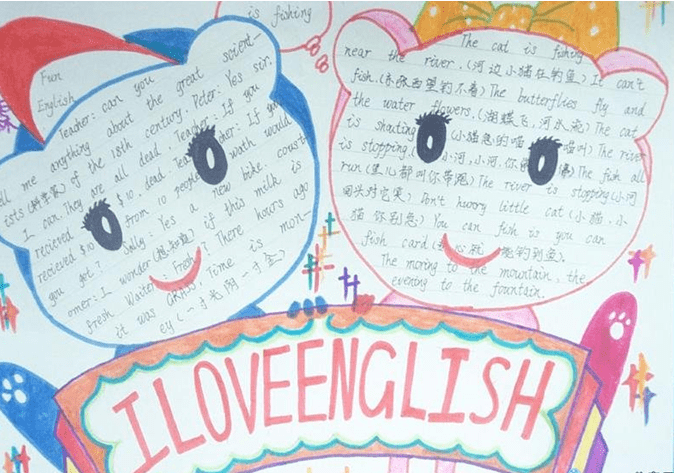 is fishing
Fun
English
Teacher: can you
tell me anything about the great scient-
ists (科学家) of the 18th century Peter: Yes sir.
I can. They are all dead. Teacher: If you
recieved $10 from 10 people
you got? Sally: Yes a new bike. coust-
omer: I wonder if this milk is
fresh Waiter: Fresh? There hours ago
it was GRASS. Time is mon-
ey (一寸光阴一寸金)
The cat is fishing
near the river. (河边小猫在钓鱼) It can't
fish. (东张西望钓不着) The butterflies fly and
the water flowers. (蝴蝶飞, 河水流) The cat
is shouting (小猫急的喵喵叫) The river
is stopping. (小河, 小河你 The fish all
run (里心都叫你带跑) The river is stopping (小河
回头对它笑) Don't hurry little cat (小猫, 小
猫 你别急) You can fish is you can
fish card 钓到鱼).
The moring to the mountain, the
evening to the fountain.
ILOVEENGLISH